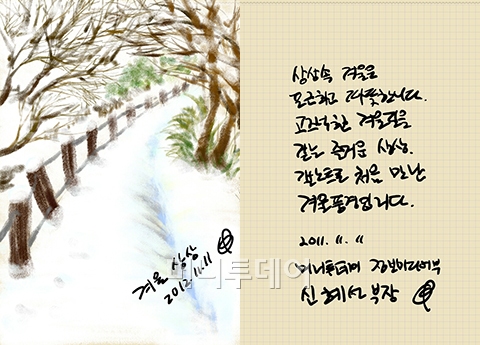 겨울 상상
2011.11.11
머니투데이
상상속 겨울은
포근하고 따뜻합니다.
고즈넉한 겨울길을
걷는 즐거운 상상.
갤노트로 처음 만난
겨울풍경입니다.
2011. 11. 11
머니투데이 정보미디어부
신혜선 부장